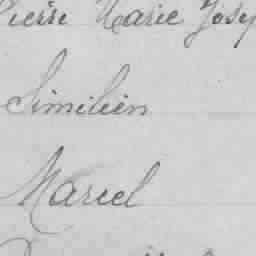 Pierre Marie Josep
Similien
Marcel